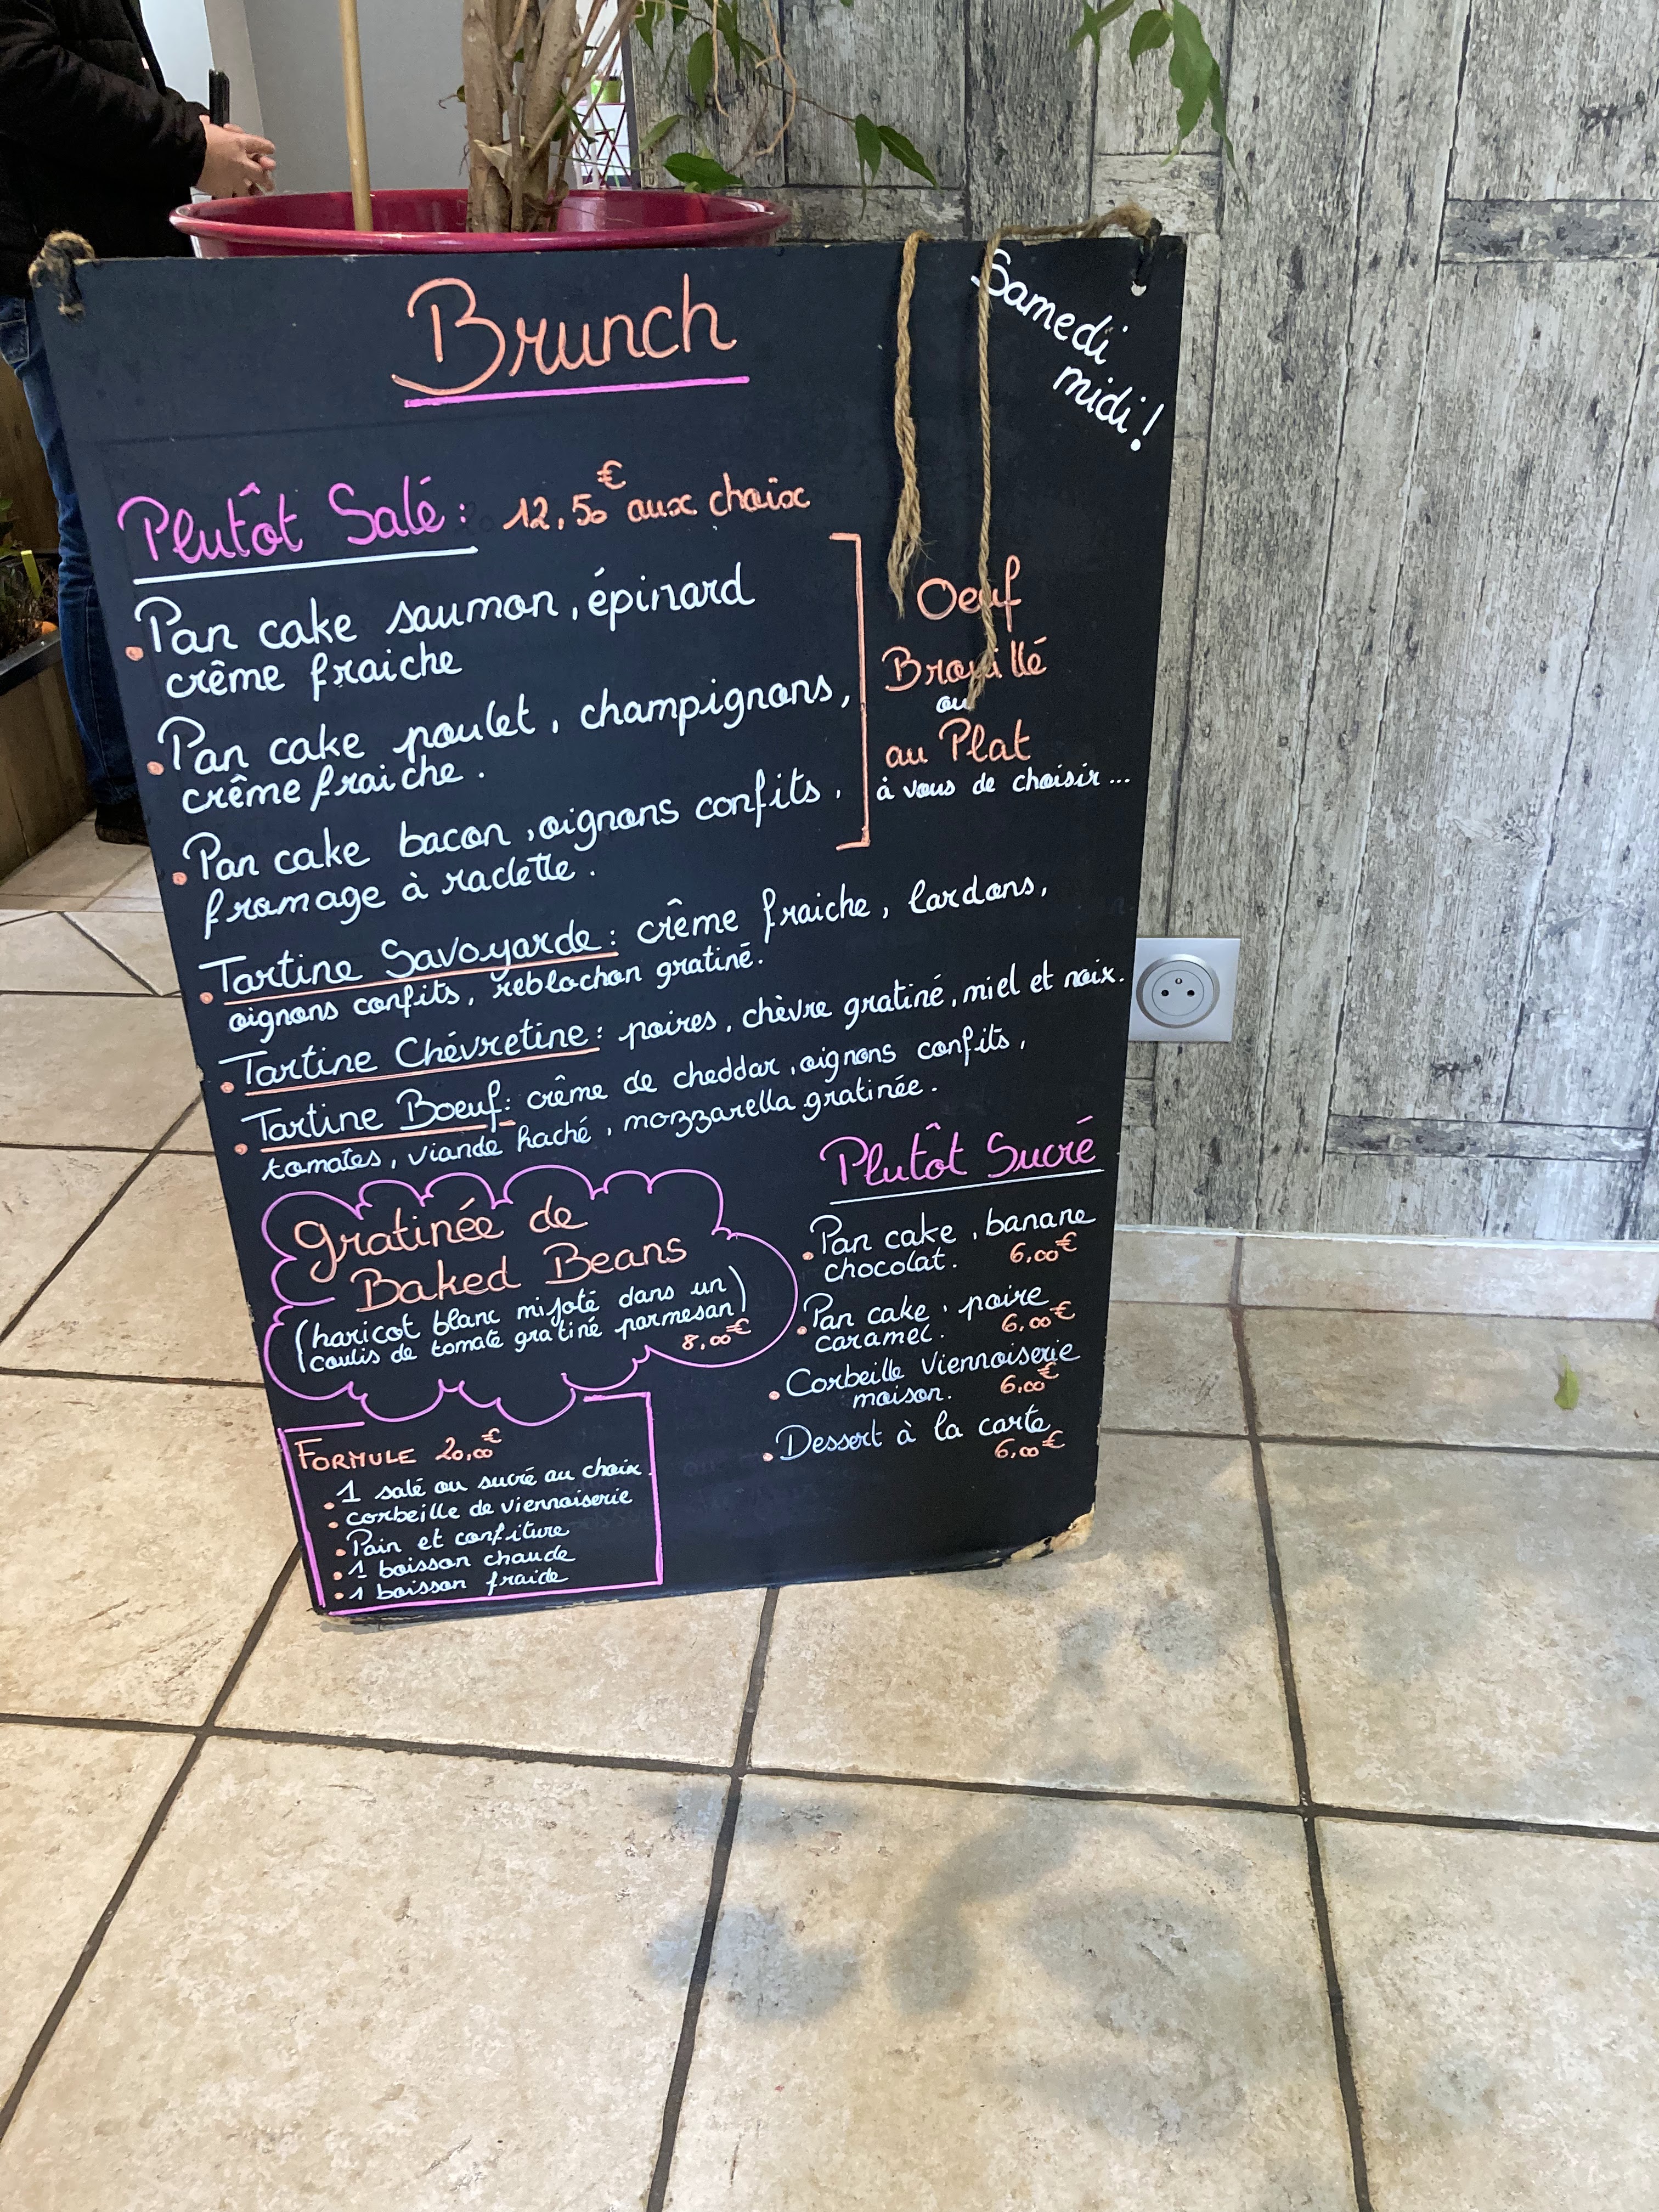 Brunch
Samedi
midi!
Plutôt Salé: 12,50€ aux choix
• Pan cake saumon, épinard
crême fraiche
• Pan cake poulet, champignons,
crême fraiche.
• Pan cake bacon, oignons confits,
fromage à raclette.
Oeuf
Brouillé
ou
au Plat
à vous de choisir...
• Tartine Savoyarde: crême fraiche, lardons,
oignons confits, reblochon gratiné.
• Tartine Chévretine: poires, chèvre gratiné, miel et noix.
• Tartine Boeuf: crême de cheddar, oignons confits,
tomates, viande haché, mozzarella gratinée.
gratinée de
Baked Beans
(haricot blanc mijoté dans un
coulis de tomate gratiné parmesan)
8,00€
Plutôt Sucré
• Pan cake, banane
chocolat. 6,00€
• Pan cake, poire
caramel. 6,00€
• Corbeille Viennoiserie
maison. 6,00€
• Dessert à la carte
6,00€
FORMULE 20,00€
• 1 salé ou sucré au choix.
• corbeille de viennoiserie
• Pain et confiture
• 1 boisson chaude
• 1 boisson fraide